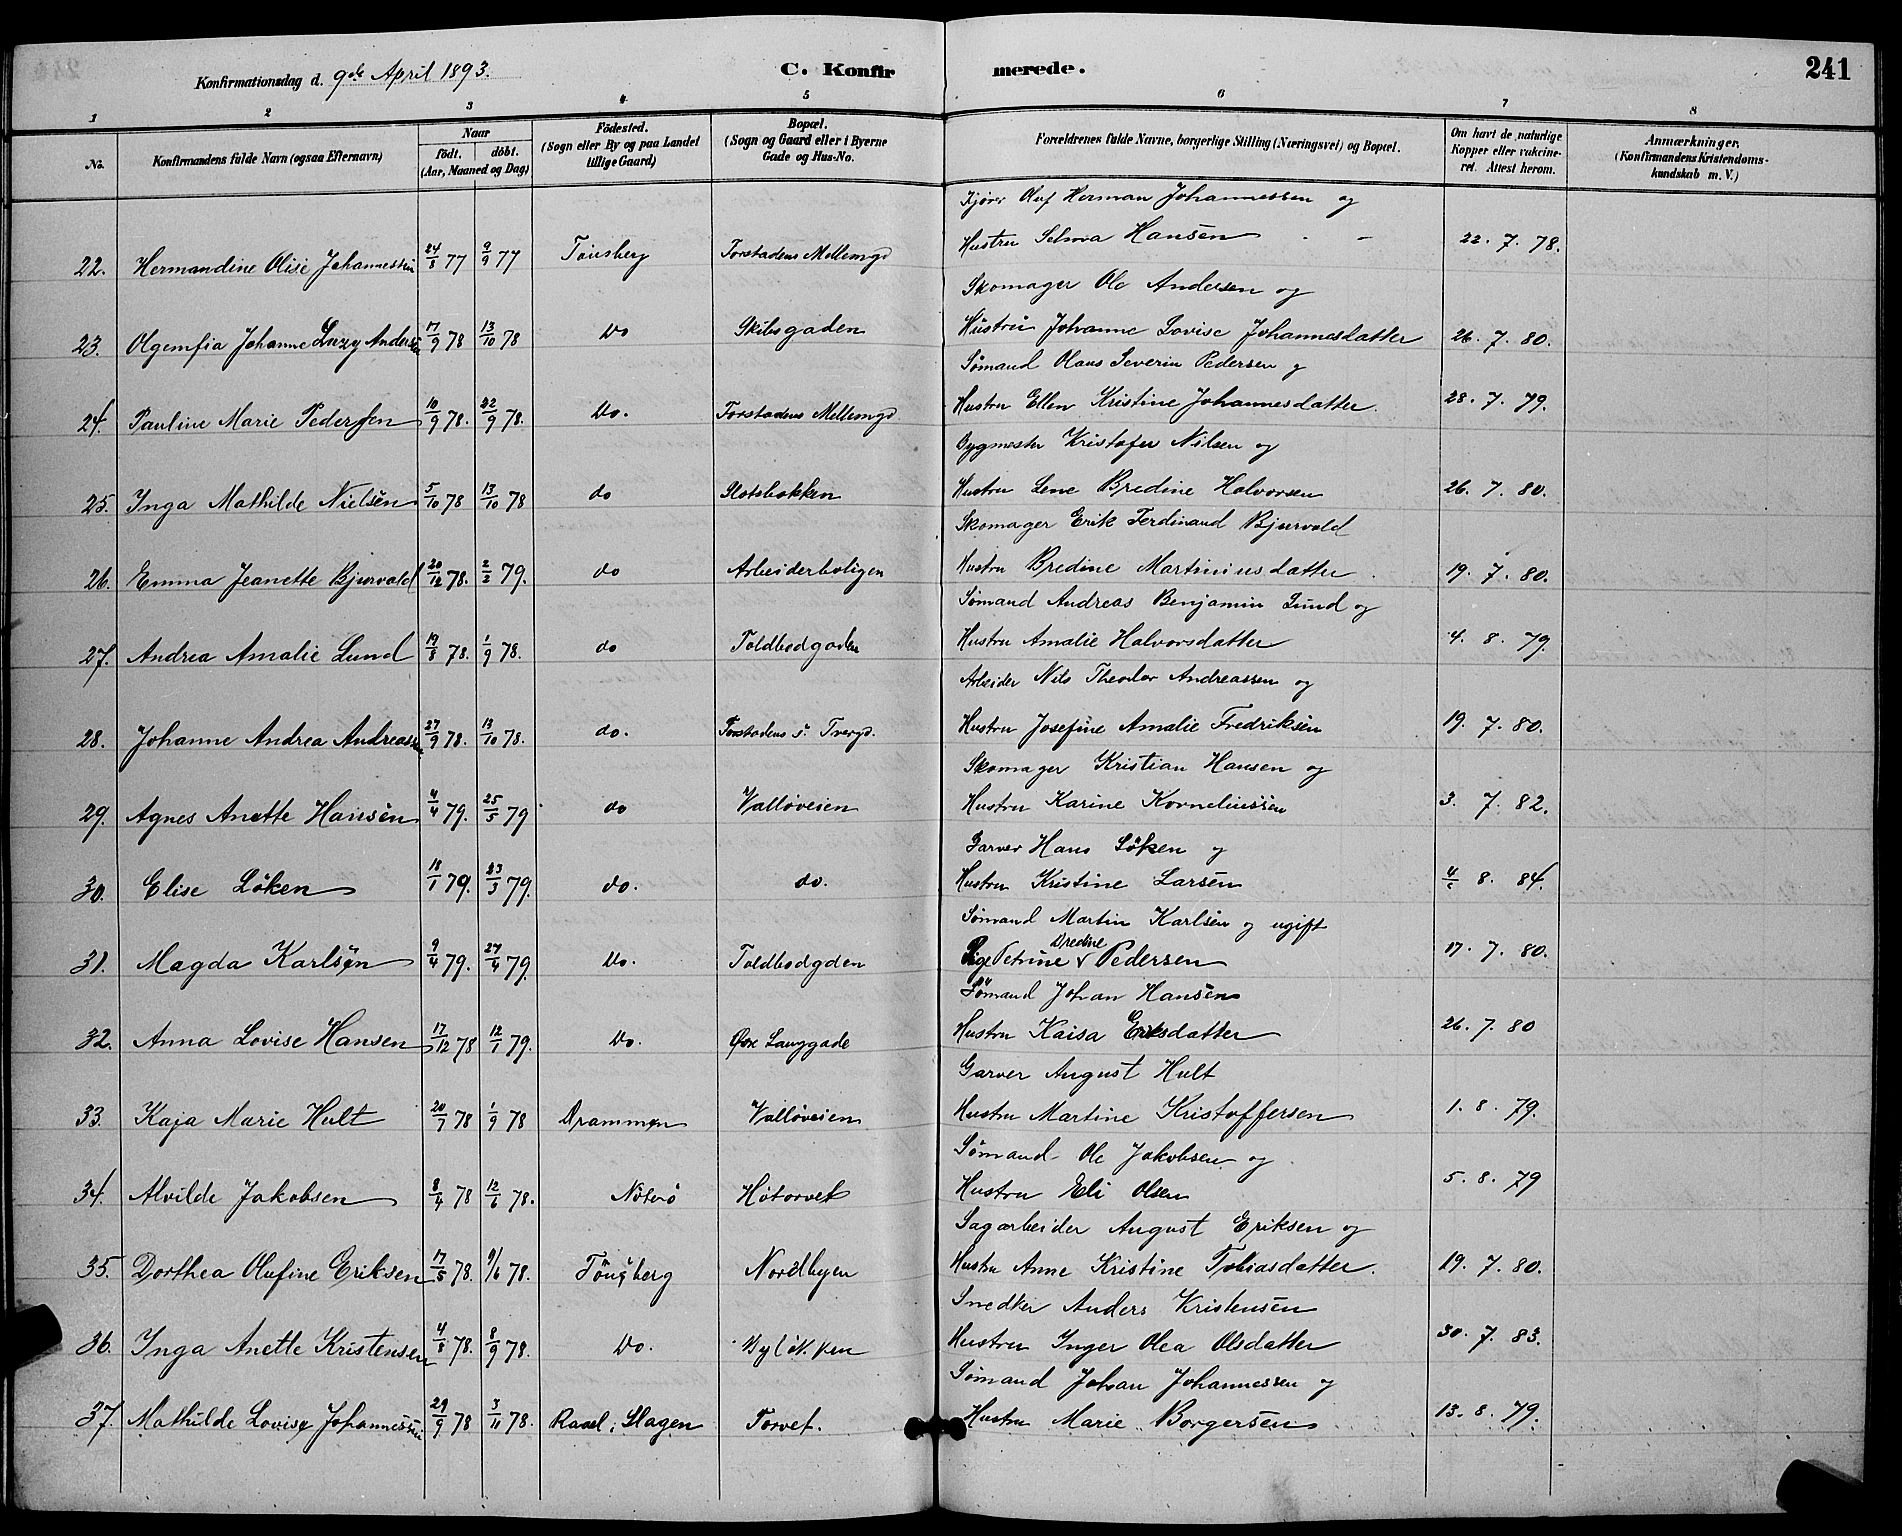 Konfirmationsdag d. 9de April 1893. C. Konfirmerede. 241
1 2 3 4 5 6 7 8
No. Konfirmandens fulde Navn (ogsaa Efternavn) Naar födt. döbt. (Aar, Maaned og Dag) Födested. (Sogn eller By og paa Landet tillige Gaard) Bopæl. (Sogn og Gaard eller i Byerne Gade og Hus-No. Forældrenes fulde Navne, borgerlige Stilling (Næringsvei) og Bopæl. Om havt de naturlige Kopper eller vakcineret. Attest herom. Anmærkninger. (Konfirmandens Kristendomskundskab m. V.)
Kjörer Oluf Herman Johannessen og
22. Hermandine Olise Johannessen 24/8 77 9/9 77 Tönsberg Forstadens Mellemgd Hustru Selma Hansen 22. 7. 78.
Skomager Ole Andersen og
23. Johanne Lucy Andersen 17/9 78 13/10 78 Do Skibsgaden Hustru Johanne Lovise Johannesdatter 26. 7. 80.
Sömand Olaus Severin Pedersen og
24. Pauline Marie Pedersen 10/9 78. 22/9 78. Do. Forstadens Mellemgd Hustru Ellen Kristine Johannesdatter. 28. 7. 79.
Bygmester Kristofer Nilsen og
25. Inga Mathilde Nielsen 5/10 78 13/10 78 do Slotsbakken Hustru Lene Bredine Halvorsen 26. 7. 80.
Skomager Erik Ferdinand Bjurvald
26. Emma Jeanette Bjurvald 20/12 78. 2/2 79. do Arbeiderboligen Hustru Bredine Martiniusdatter 19. 7. 80.
Sömand Andreas Benjamin Lund og
27. Andrea Amalie Lund 19/8 78. 1/9 78. do Toldbodgaden Hustru Amalie Halvorsdatter 4. 8. 79.
Arbeider Nils Theodor Andreassen og
28. Johanne Andrea Andreassen 27/9 78. 13/10 78. do. Forstadens s. Tvergd. Hustru Josefine Amalie Fredriksen 19. 7. 80.
Skomager Kristian Hansen og
29. Agnes Anette Hansen 4/4 79. 25/5 79 do Valløveien Hustru Karine Korneliussen 3. 7. 82.
Garver Hans Löken og
30. Elise Löken 18/1 79. 23/3 79. do. do. Hustru Kristine Larsen 4 8. 84.
Sömand Martin Karlsen og ugift
31. Magda Karlsen 9/4 79. 27/4 79. Do. Toldbodgden Pige Petrine Bredine Pedersen 17. 7. 80.
Sömand Johan Hansen
32. Anna Lovise Hansen 17/12 78 12/1 79. Do. Øvre Langgade Hustru Kaisa Eriksdatter 26. 7. 80
Garver August Hult
33. Kaja Marie Hult 20/7 78 1/9 78 Drammen Valløveien Hustru Martine Kristoffersen 1. 8. 79.
Sömand Ole Jakobsen og
34. Alvilde Jakobsen 8/4 78 12/6 78. Nöterö Høtorvet Hustru Eli Olsen 5. 8. 79
Sagarbeider August Eriksen og
35. Dorthea Olufine Eriksen 17/5 78. 9/6 78. Tönsberg Nordbyen Hustru Anne Kristine Tobiasdatter. 19. 7. 80.
Snedker Anders Kristensen
36. Inga Anette Kristensen 4/8 78. 8/9 78. Do. Byløkken Hustru Inger Olea Olsdatter 30. 7. 83.
Sömand Johan Johannessen og
37. Mathilde Lovise Johannessen 29/9 78 3/11 78. Rael i Slagen Torvet. Hustru Marie Borgersen 13. 8. 79.